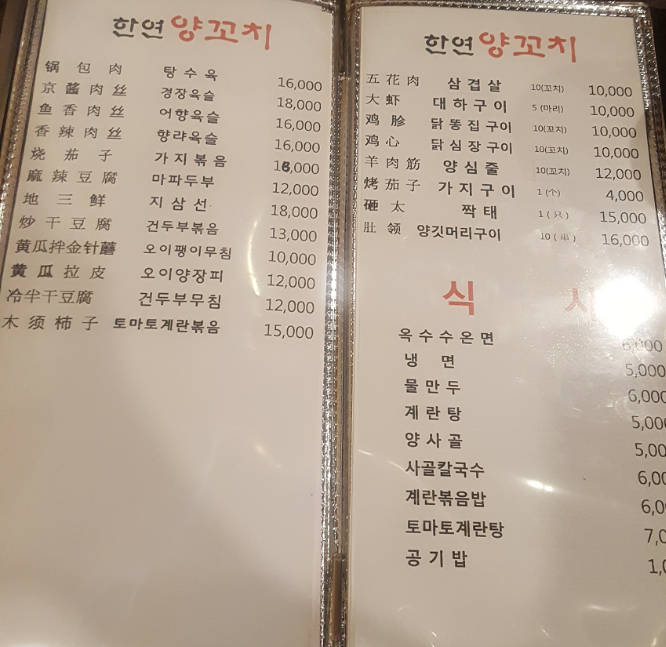 한연 양꼬치
锅包肉 탕수육 16,000
京酱肉丝 경장육슬 18,000
鱼香肉丝 어향육슬 16,000
香辣肉丝 향랴육슬 16,000
烧茄子 가지볶음 16,000
麻辣豆腐 마파두부 12,000
地三鲜 지삼선 18,000
炒干豆腐 건두부볶음 13,000
黄瓜拌金针蘑 오이팽이무침 10,000
黄瓜拉皮 오이양장피 12,000
冷半干豆腐 건두부무침 12,000
木须柿子 토마토계란볶음 15,000
한연 양꼬치
五花肉 삼겹살 10(꼬치) 10,000
大虾 대하구이 5(마리) 10,000
鸡胗 닭똥집구이 10(꼬치) 10,000
鸡心 닭심장구이 10(꼬치) 10,000
羊肉筋 양심줄 10(꼬치) 12,000
烤茄子 가지구이 1(个) 4,000
砸太 짝태 1(只) 15,000
肚领 양깃머리구이 10(串) 16,000
식 사
옥수수온면 6,000
냉면 5,000
물만두 6,000
계란탕 5,000
양사골 5,00
사골칼국수 6,00
계란볶음밥 6,0
토마토계란탕 7,0
공기밥 1,0